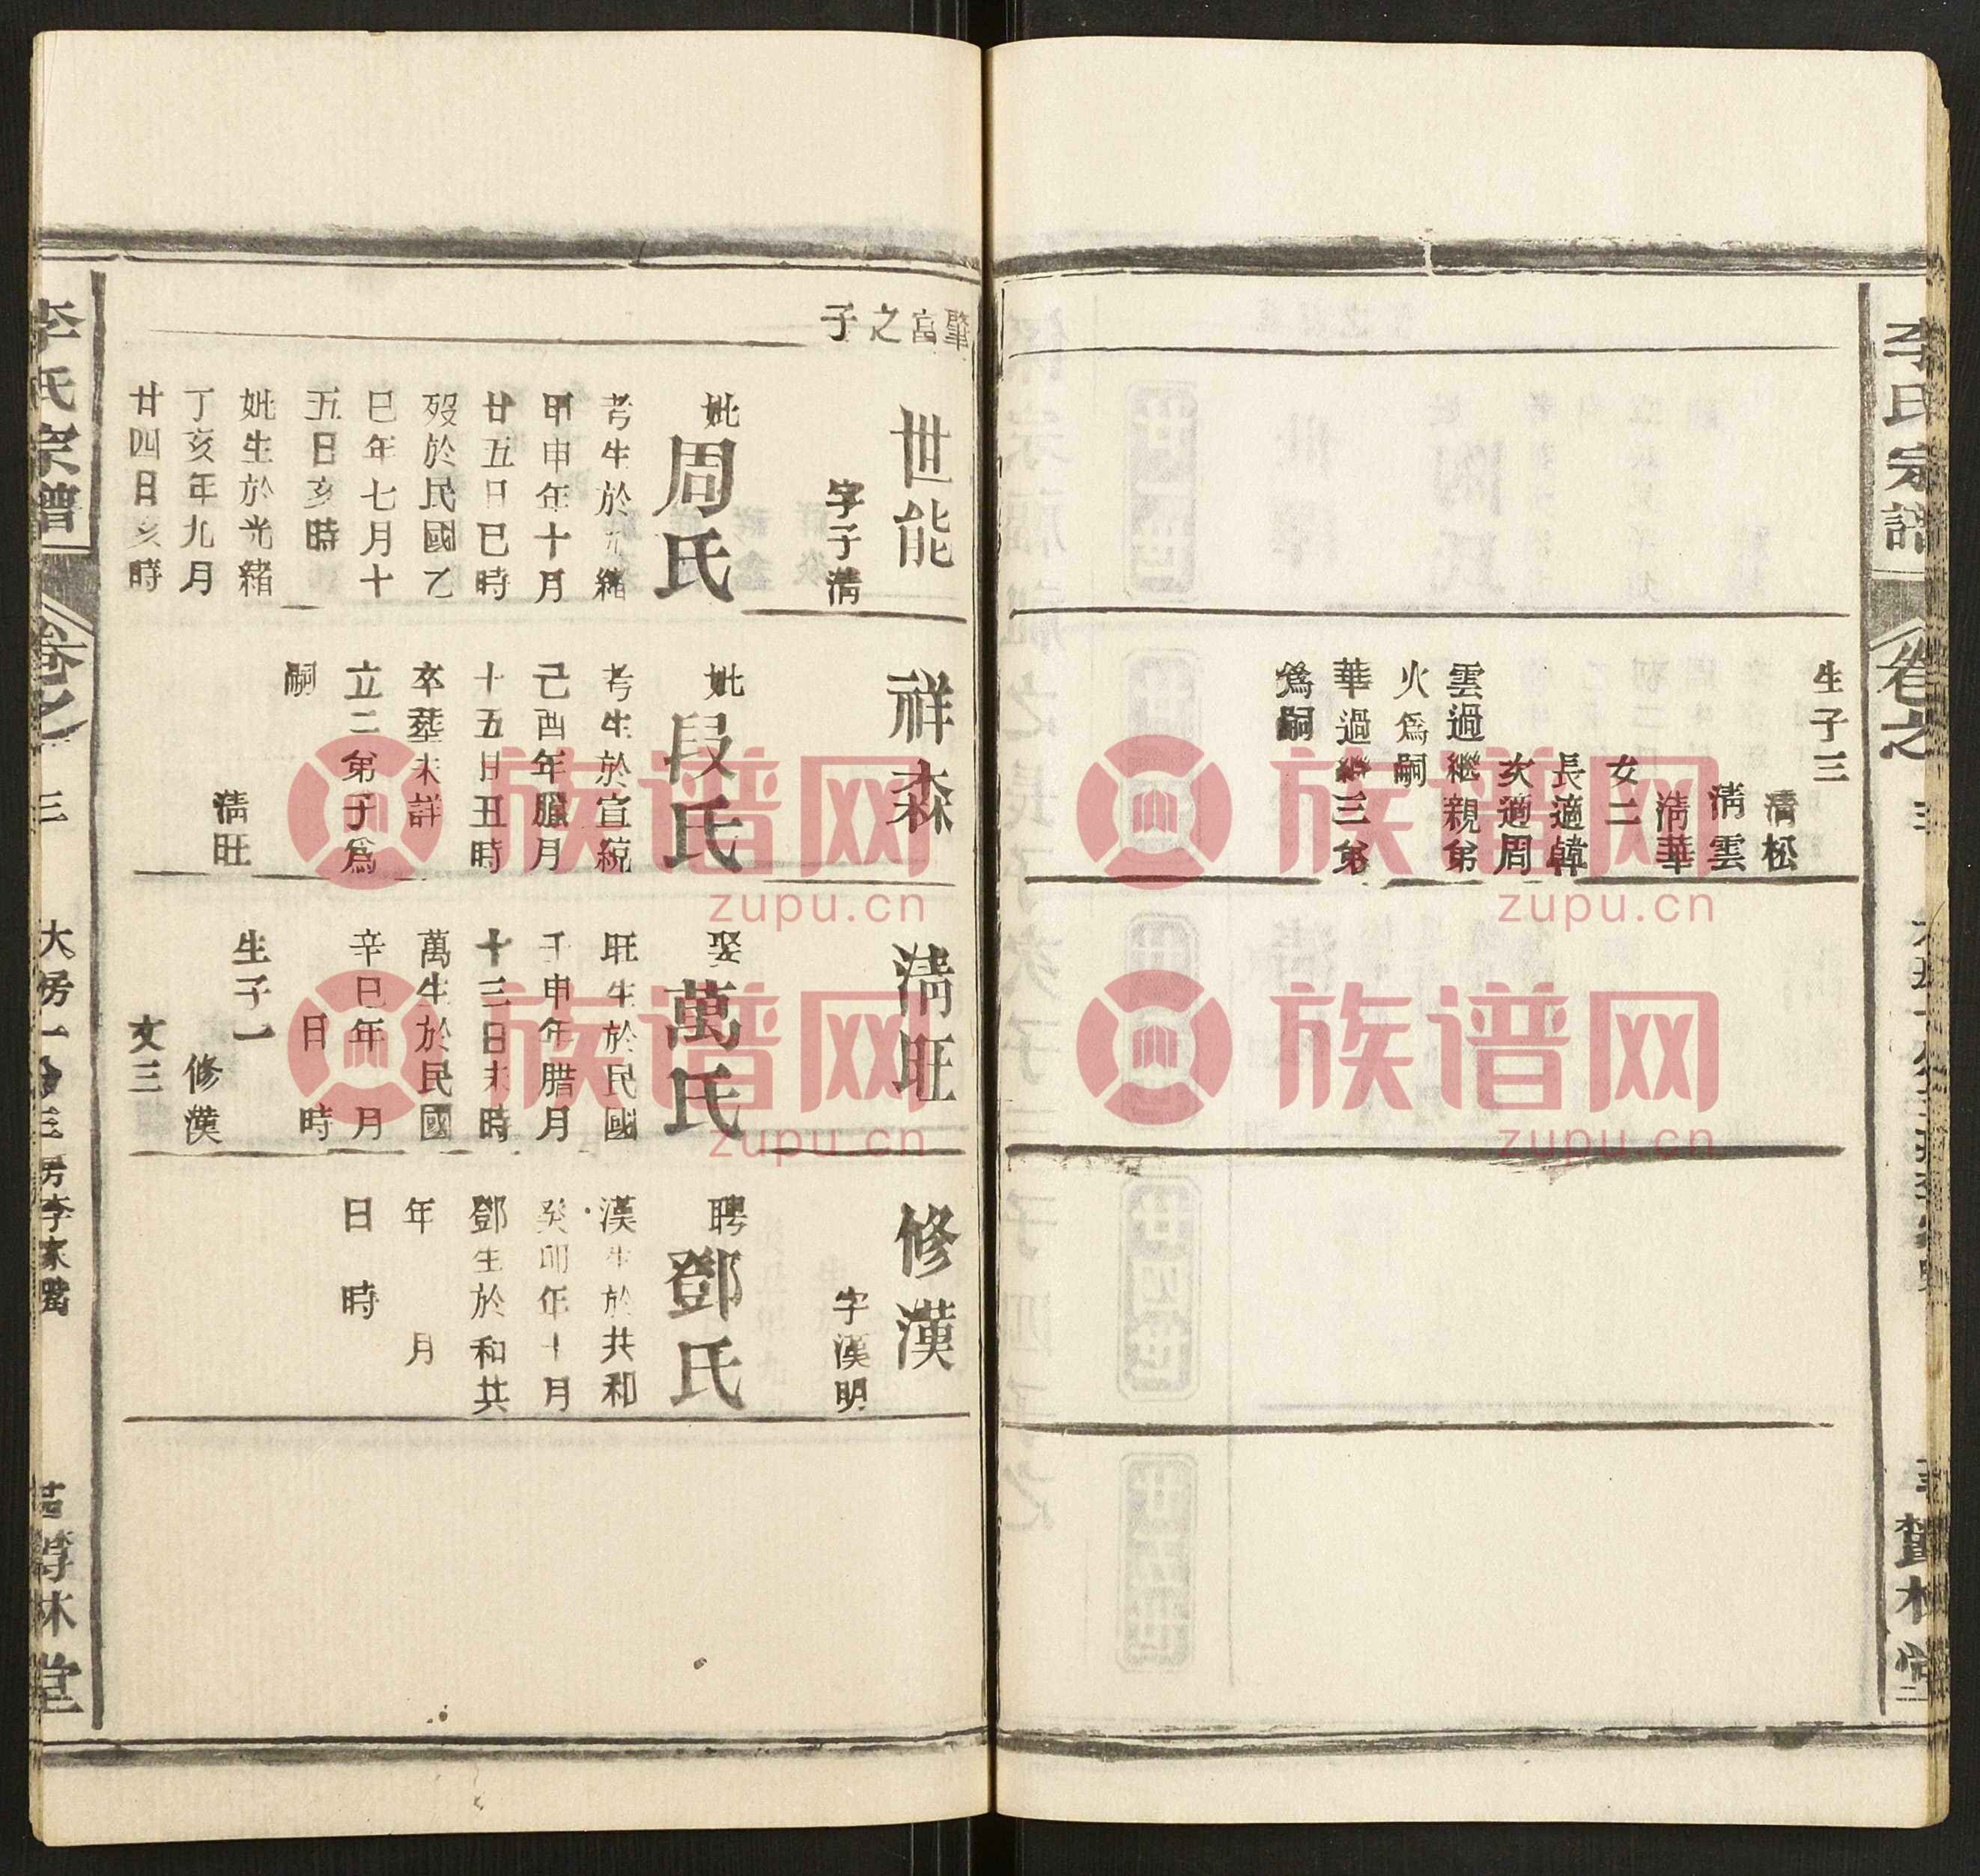 李氏宗譜
卷之
生子三
清松
清雲
清華
女二
長適韓
次適周
雲過繼親弟
火爲嗣
華過繼三弟
爲嗣
肇富之子
世能
字子清
妣周氏
考生於光緒
甲申年十月
廿五日巳時
歿於民國乙
巳年七月十
五日亥時
妣生於光緒
丁亥年九月
廿四日亥時
祥森
妣段氏
考生於宣統
己酉年臘月
十五日丑時
卒塟未詳
立二弟子爲
嗣
清旺
清旺
娶萬氏
旺生於民國
壬申年腊月
十三日未時
萬生於民國
辛巳年 月
日 時
生子一
修漢
女三
修漢
字漢明
聘鄧氏
漢生於共和
癸卯年十月
鄧生於和共
年 月
日 時
李氏宗譜
卷之
三
大房一
三房李家嘴
林堂
族谱网
zupu.cn
族谱网
zupu.cn
族谱网
zupu.cn
族谱网
zupu.cn